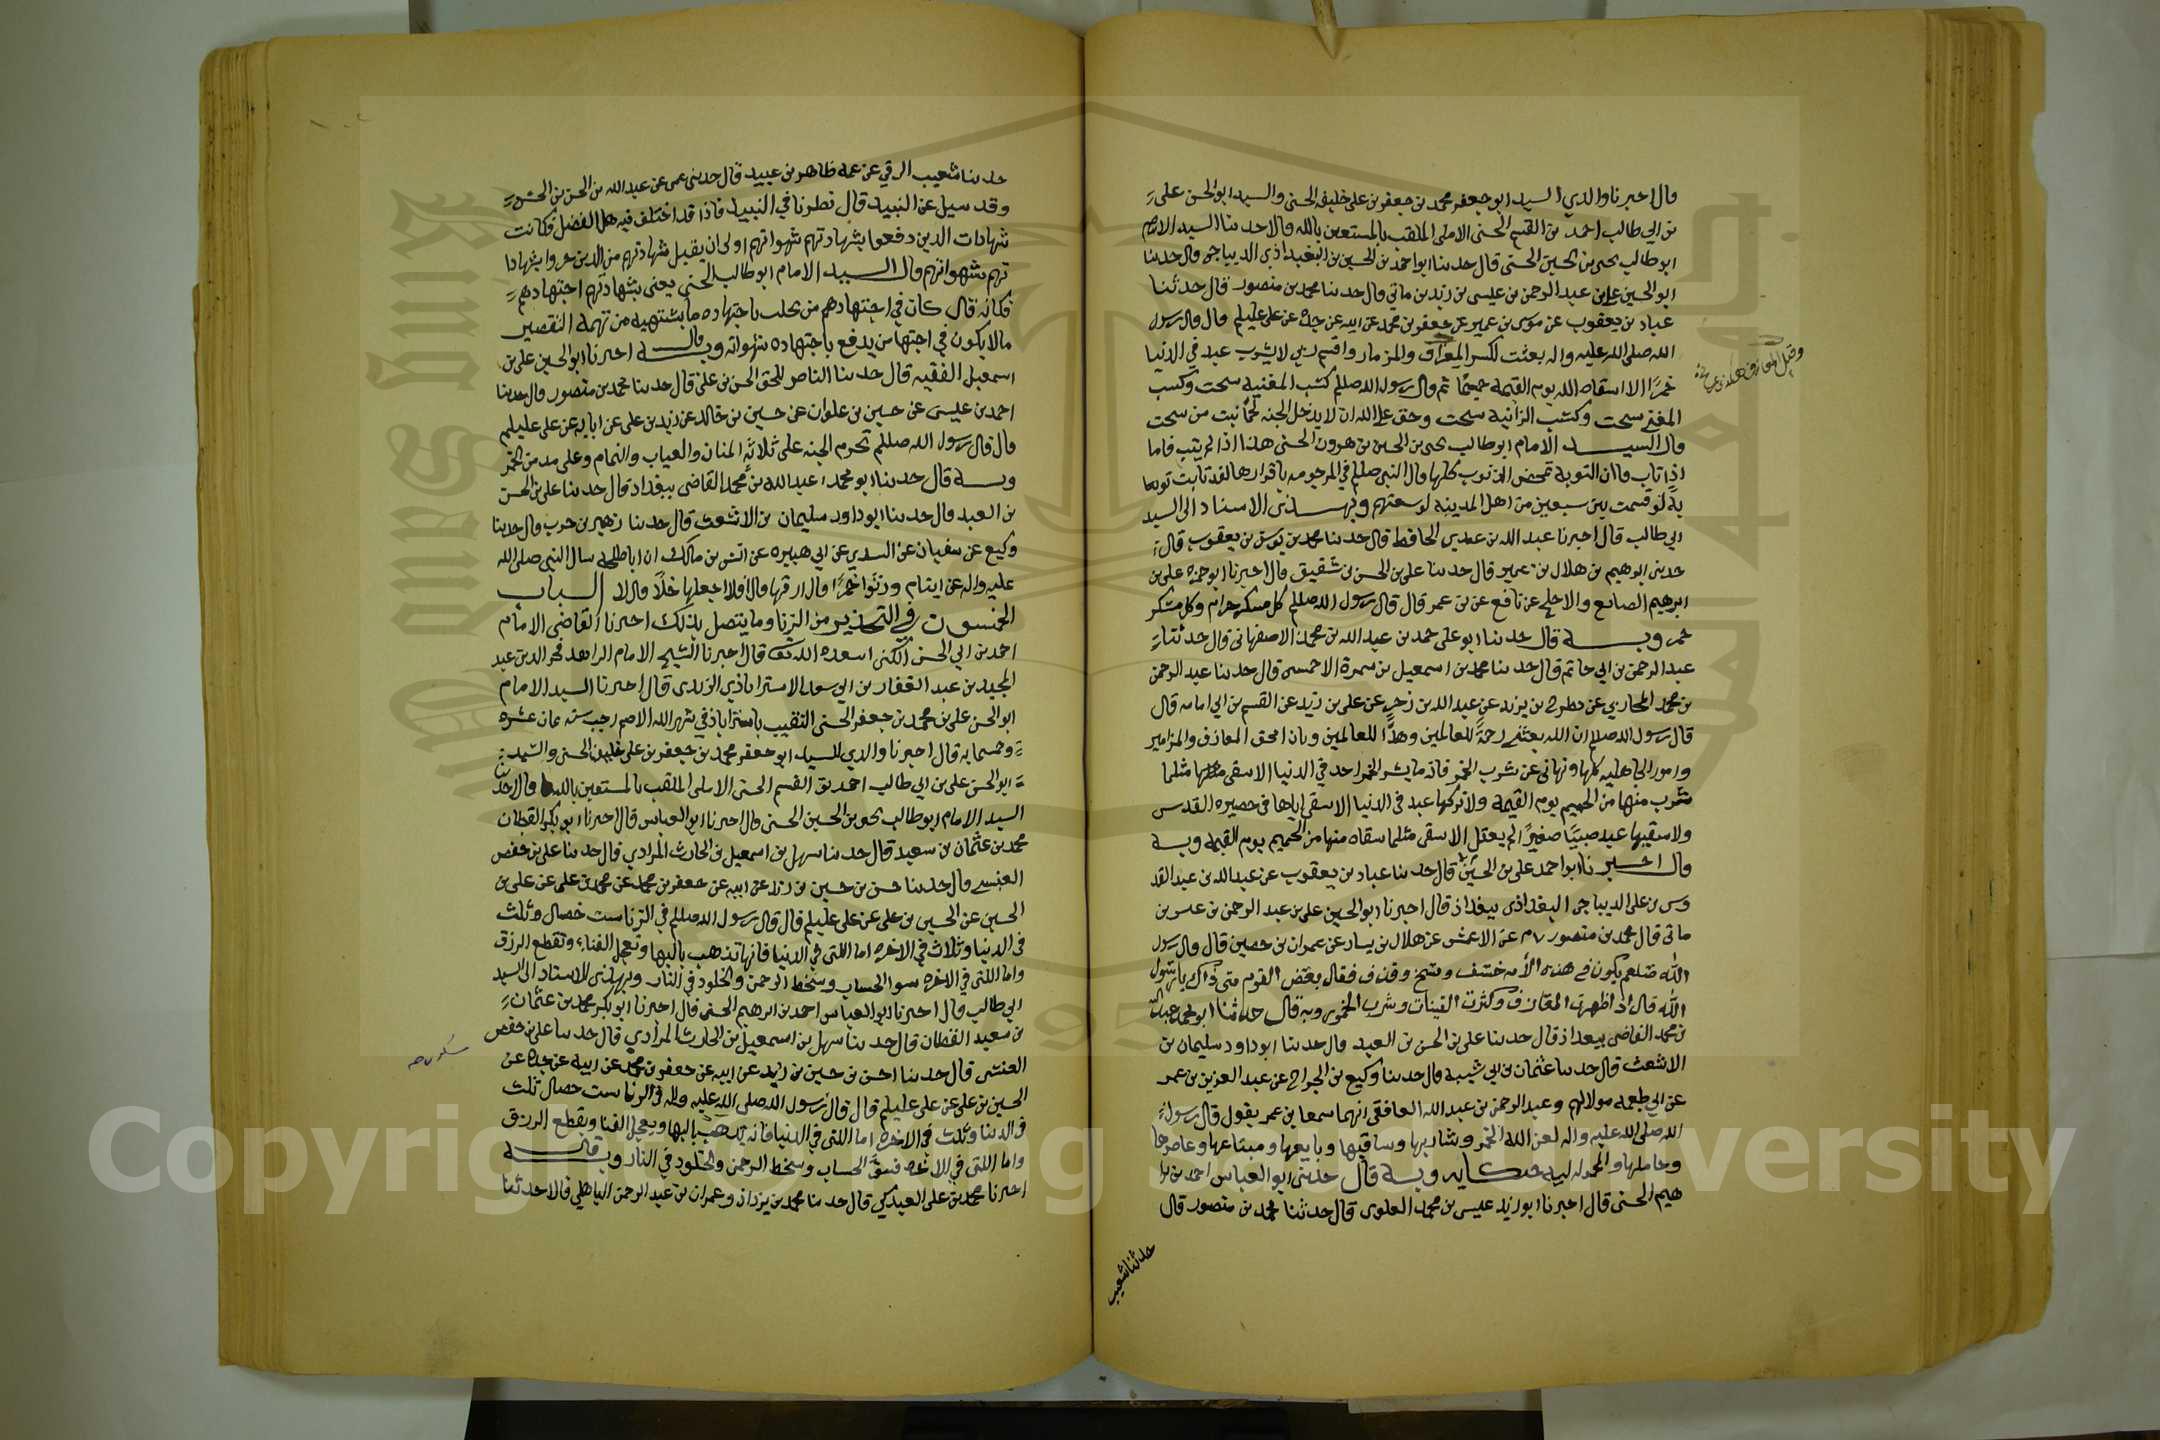 قال اخبرنا والدي السيد ابو جعفر محمد بن جعفر بن علي خليفه الحسني والسيد ابو الحسن علي
بن ابي طالب احمد بن القسم الحسني الاملي الملقب بالمستعين بالله قالا حدثنا السيد الامام
ابو طالب يحيى بن الحسين الحسني قال حدثنا ابو احمد بن الحسين بن البغدادي الديباجي قال حدثنا
ابو الحسين علي بن عبد الرحمن بن عيسى بن زيد بن ماتي قال حدثنا محمد بن منصور قال حدثنا
عباد بن يعقوب عن موسى بن عمير عن جعفر بن محمد عن ابيه عن جده عن علي عليلم قال قال رسول
الله صلى الله عليه واله بعثت لكسر المعزاف والمزمار واقسم ربي لا يشرب عبد في الدنيا
خمرًا الا اسقاه الله يوم القيمة حميمًا ثم قال رسول الله صللم كسب المغنية سحت وكسب
المغني سحت وكسب الزانية سحت وحق على الله ان لا يدخل الجنه لحمًا نبت من سحت
قال السيد الامام ابو طالب يحيى بن الحسين بن هرون الحسني هذا اذا لم يتب فاما
اذا تاب فان التوبة تمحض الذنوب كلها قال النبي صللم في المرجومه باقرارها لقد تابت توبة
لو قسمت بين سبعين من اهل المدينه لوسعتهم وبهذا الاسناد الى السيد
ابي طالب قال اخبرنا عبد الله بن عدي الحافظ قال حدثنا محمد بن يونس بن يعقوب قال
حدثني ابرهيم بن هلال بن عمير قال حدثنا علي بن الحسن بن شقيق قال اخبرنا ابو حمزه علي بن
ابرهيم الصايغ والاجلح عن نافع عن بن عمر قال قال رسول الله صللم كل مسكر حرام وكل مسكر
خمر وبه قال حدثنا ابو علي حمد بن عبد الله بن محمد الاصفهاني قال حدثنا
عبد الرحمن بن ابي حاتم قال حدثنا محمد بن اسمعيل بن سمرة الاحمسي قال حدثنا عبد الرحمن
بن محمد المحاربي عن مطرح بن يزيد عن عبد الله بن زحر عن علي بن زيد عن القسم بن ابي امامه قال
قال رسول الله صللم ان الله بعثني رحمةً للعالمين وهدًا للعالمين وبان امحق المعازف والمزامير
وامور الجاهليه كلها ونهاني عن شرب الخمر فاذ ما يشر الخمر احد في الدنيا الا سقى مثلها مثلما
شرب منها من الحميم يوم القيمة ولا تركها عبد في الدنيا الا سقي اياها في حضيره القدس
ولا سقيها عبد صبيًا صغيرًا لم يعقل الا سقي مثلما سقاه منها من الحميم يوم القيمة وبه
قال اخبرنا ابو احمد علي بن الحسين قال حدثنا عباد بن يعقوب عن عبد الله بن عبد القد
وس بن علي الديباجي البغدادي ببغداذ قال اخبرنا ابو الحسين علي بن عبد الرحمن بن عيسى بن
ماتي قال محمد بن منصور عن الاعمش عن هلال بن يسار عن عمران بن حصين قال قال رسول
الله صلعم يكون في هذه الأمه خسف ومسخ وقذف فقال بعض القوم متى ذاك يا رسول
الله قال اذا ظهرت المعازف وكثرت القينات وشرب الخمور وبه قال حدثنا ابو محمد عبد الله
بن محمد القاضي ببغداذ قال حدثنا علي بن الحسن بن العبد قال حدثنا ابو داود سليمان بن
الاشعث قال حدثنا عثمان بن ابي شيبه قال حدثنا وكيع بن الجراح عن عبد العزيز بن عمر
عن ابي طعمه مولاهم وعبد الرحمن بن عبد الله الغافقي انهما سمعا بن عمر يقول قال رسول
الله صلى الله عليه واله لعن الله الخمر وشاربها وساقيها وبايعها ومبتاعها وعاصرها
وحاملها والمحموله اليه حكايه وبه قال حدثني ابو العباس احمد بن ابر
هيم الحسني قال اخبرنا ابو زيد عيسى بن محمد العلوي قال حدثنا محمد بن منصور قال
حدثنا شعيب
حدثنا شعيب الرقي عن عمه طاهر بن عبيد قال حدثني عمي عن عبد الله بن الحسن بن الحسن
وقد سيل عن النبيد قال نظرنا في النبيد فاذا قد اختلف فيه اهل الفضل فكانت
شهادات الدين دفعوا بشهادتهم شهواتهم اولى ان يقبل شهادتهم من الدين جروا بشهادا
تهم شهواتهم قال السيد الامام ابو طالب الحسني يعني بشهادتهم اجتهادهم
فكانه قال كان في اجتهادهم من يحلب باجتهاده ما يشتهيه من تهمة التقصير
مالا يكون في اجتها من يدفع باجتهاده شهواته وبه قال اخبرنا ابو الحسين علي بن
اسمعيل الفقيه قال حدثنا الناصر للحق الحسن بن علي قال حدثنا محمد بن منصور قال حدثنا
احمد بن عيسى عن حسين بن علوان عن حسين بن خالد عن زيد بن علي عن ابايه عن علي عليلم
قال قال رسول الله صللم تحرم الجنه على ثلاثة المنان والعياب والنمام وعلى مدمن الخمر
وبه قال حدثنا ابو محمد عبد الله بن محمد القاضي ببغداد قال حدثنا علي بن الحسن
بن العبد قال حدثنا ابو داود سليمان بن الاشعث قال حدثنا زهير بن حرب قال حدثنا
وكيع عن سفيان عن السدي عن ابي هبيره عن انس بن مالك ان ابا طلحه سال النبي صلى الله
عليه واله عن ايتام ورثوا خمرًا قال ارقها قال افلا اجعلها خلًا قال لا الباب
الخمسون في التحذير من الزنا وما يتصل بذلك اخبرنا القاضي الامام
احمد بن ابي الحسن الكني اسعده الله تعالى قال اخبرنا الشيخ الامام الزاهد فخر الدين عبد
المجيد بن عبد الغفار بن ابو سعد الاستراباذي الزيدي قال اخبرنا السيد الامام
ابو الحسن علي بن محمد بن جعفر الحسني النقيب باستراباذ في شهر الله الاصم رجب سنة ثمان عشره
وخمسمايه قال اخبرنا والدي السيد ابو جعفر محمد بن جعفر بن علي خليفة الحسني والسيد
ابو الحسن علي بن ابي طالب احمد بن القسم الحسني الاملي الملقب بالمستعين بالله قالا حدثنا
السيد الامام ابو طالب يحيى بن الحسين الحسني قال اخبرنا ابو العباس قال اخبرنا ابو بكر القطان
محمد بن عثمان بن سعيد قال حدثنا سهل بن اسمعيل بن الحارث المرادي قال حدثنا علي بن حفص
العبسي قال حدثنا حسن بن حسين بن زيد عن ابيه عن جعفر بن محمد عن محمد بن علي عن علي بن
الحسين عن الحسين بن علي عن علي عليلم قال قال رسول الله صللم في الزنا ست خصال وثلث
في الدنيا وثلاث في الاخره اما اللتي في الدنيا فانها تذهب بالبها وتعجل الفناء وتقطع الرزق
واما اللتي في الاخره سوا الحساب وسخط الرحمن والخلود في النار وبهذا الاسناد الى السيد
ابي طالب قال اخبرنا ابو العباس احمد بن ابرهيم الحسني قال اخبرنا ابو بكر محمد بن عثمان
بن سعيد القطان قال حدثنا سهل بن اسمعيل بن الحارث المرادي قال حدثنا علي بن حفص
العنسي قال حدثنا احسن بن حسين بن زيد عن ابيه عن جعفر بن محمد عن ابيه عن جده عن
الحسين بن علي عن علي عليلم قال قال رسول الله صلى الله عليه واله في الزنا ست خصال ثلث
في الدنيا وثلث في الاخره اما اللتي في الدنيا فانه يذهب بالبها ويعجل الفنا ويقطع الرزق
واما اللتي في الاخره فسوء الحساب وسخط الرحمن والخلود في النار وبه قال
اخبرنا محمد بن علي العبدكي قال حدثنا محمد بن يزداد وعمران بن عبد الرحمن الباهلي قالا حدثنا
Copyright © King Saud University
King Saud University
1957